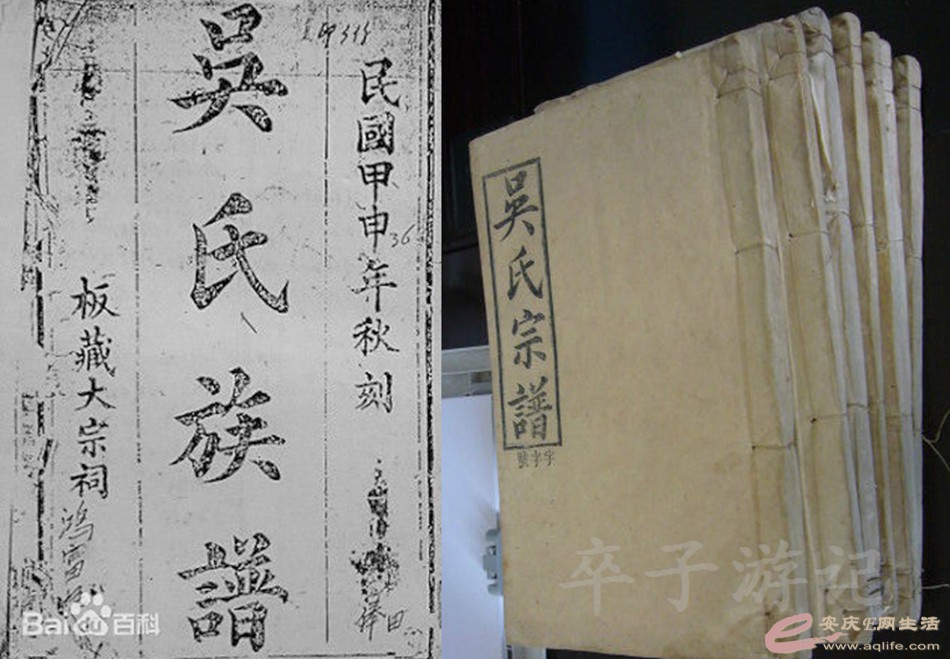 民國甲申年秋刻
36
吳氏族譜
板藏大宗祠
Bai百科
吳氏宗譜
宇字號
卒子游记
安庆E网生活
www.aqlife.com